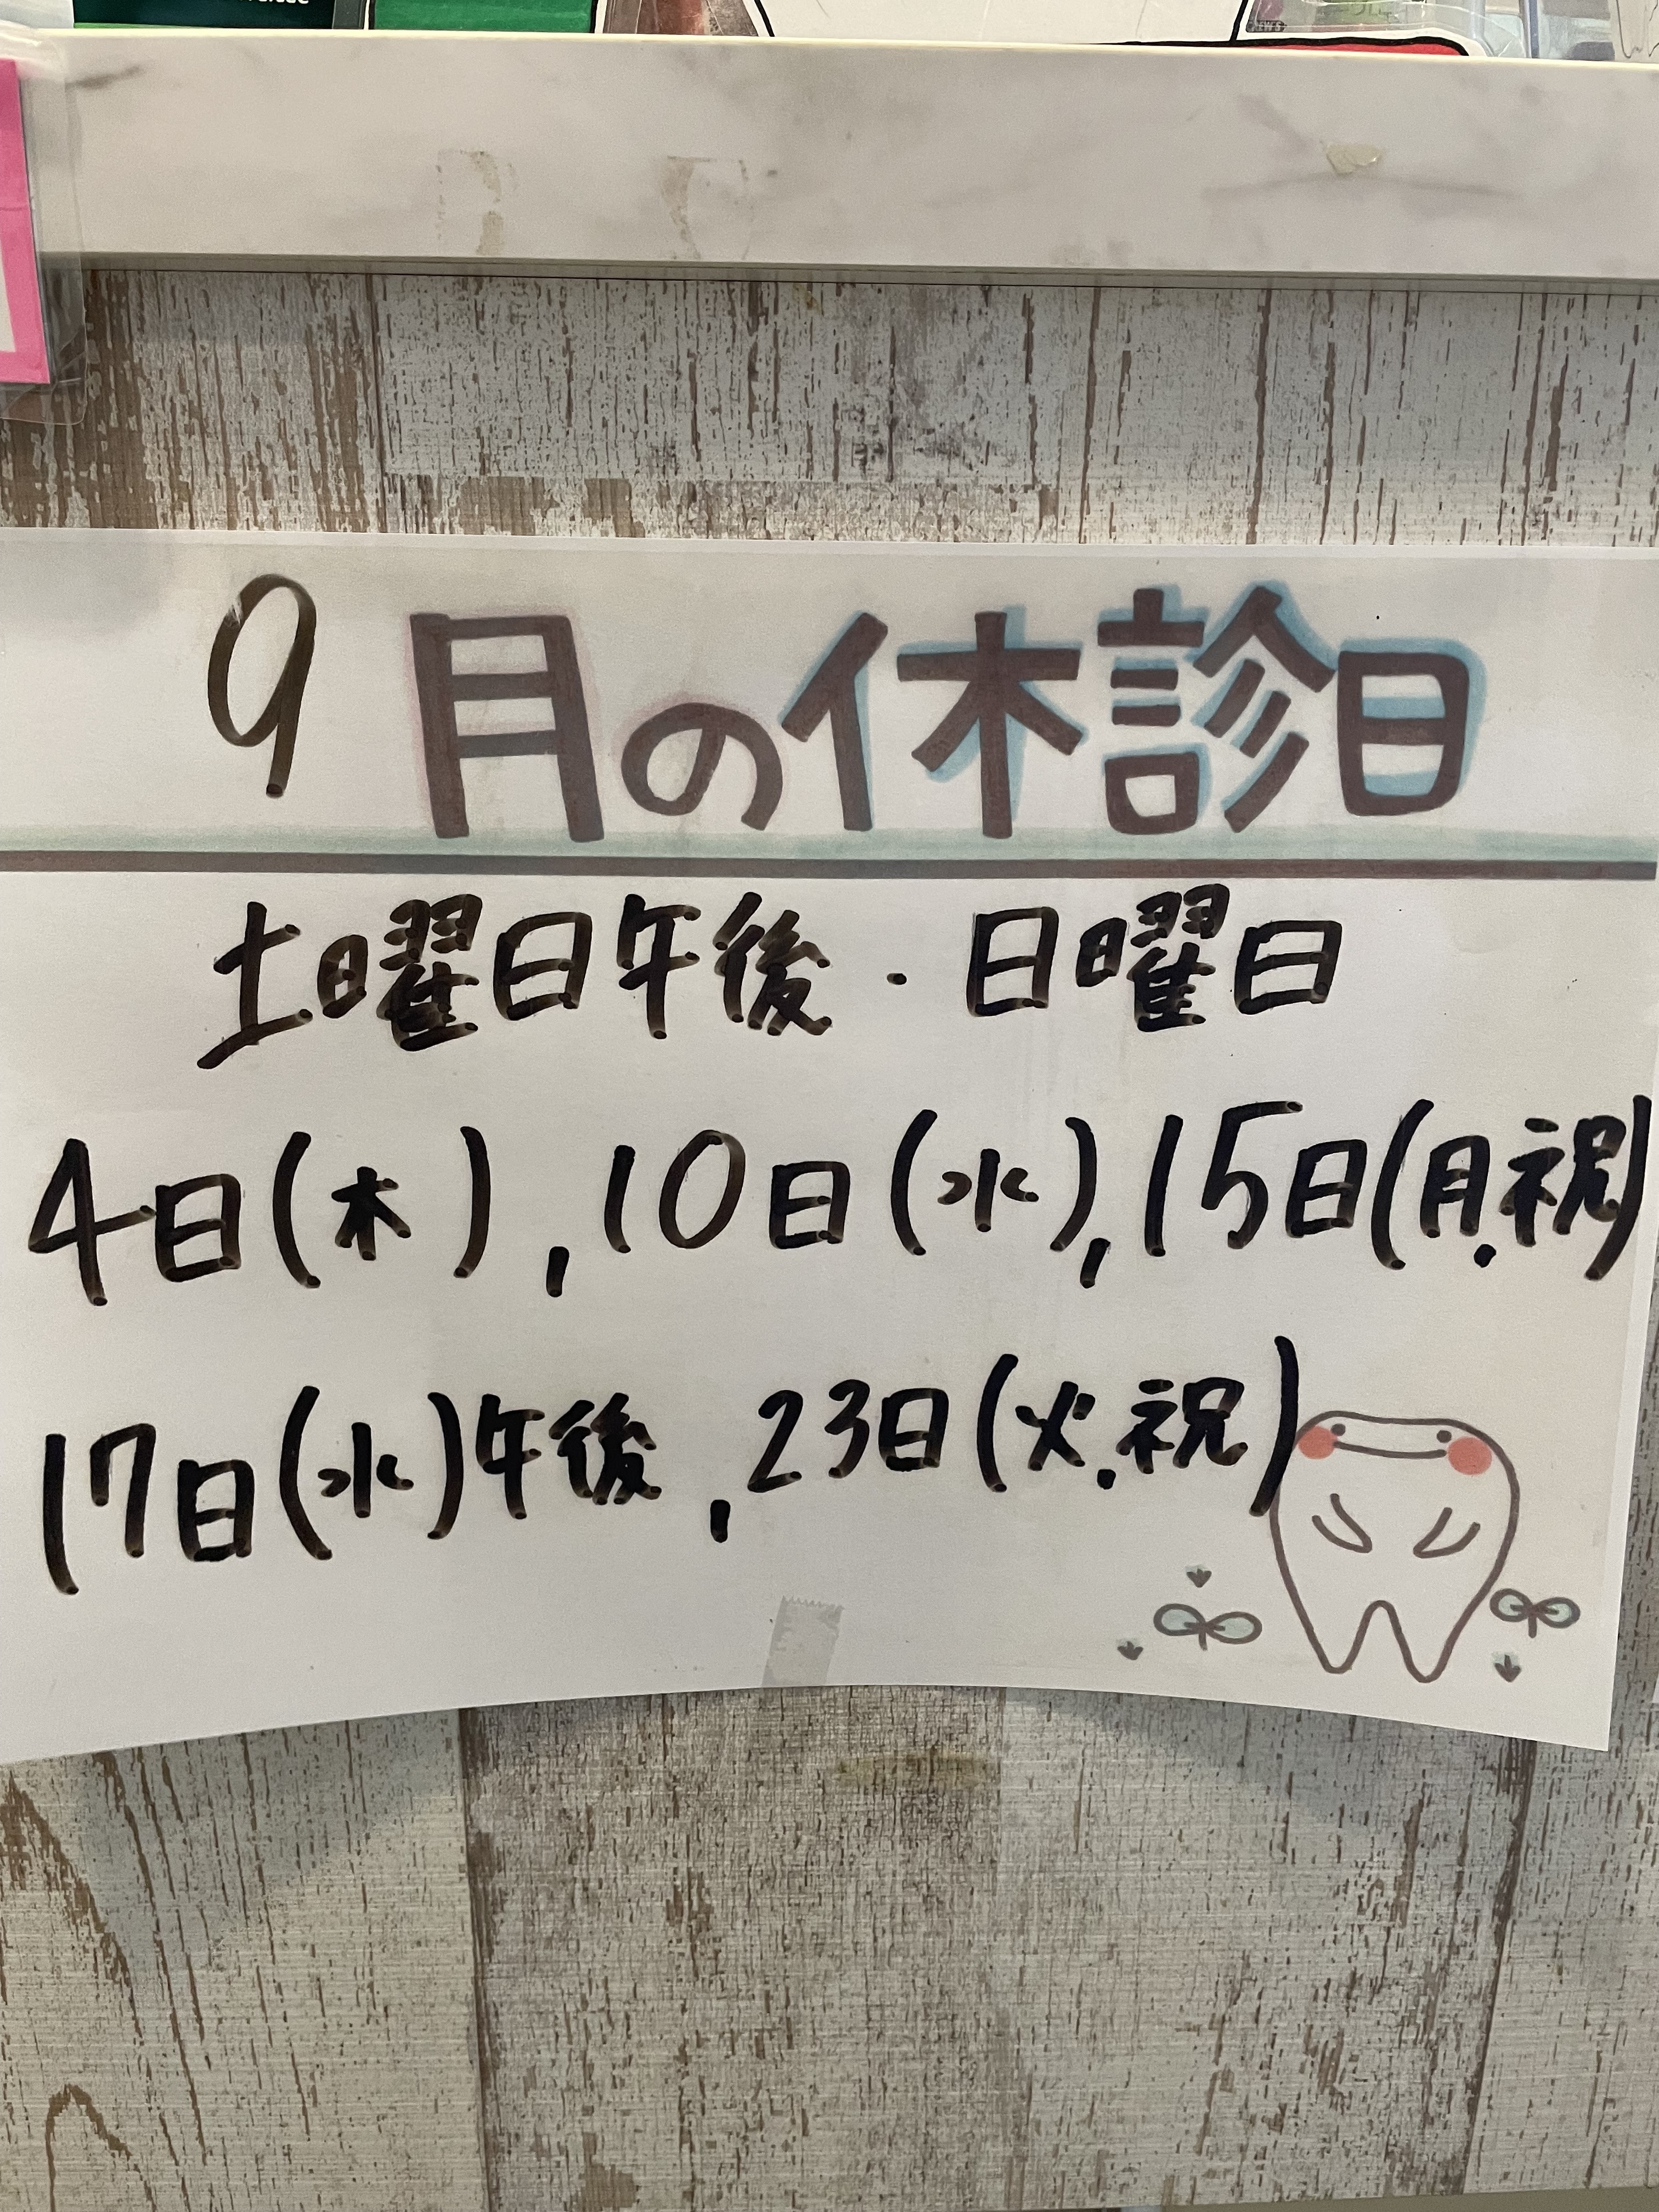 9月の休診日
土曜日午後・日曜日
4日(木),10日(水),15日(月.祝)
17日(水)午後,23日(火.祝)